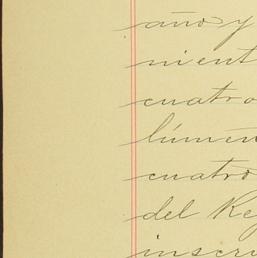 año y
nient
cuatro
lúmen
cuatro
del Re
inscri